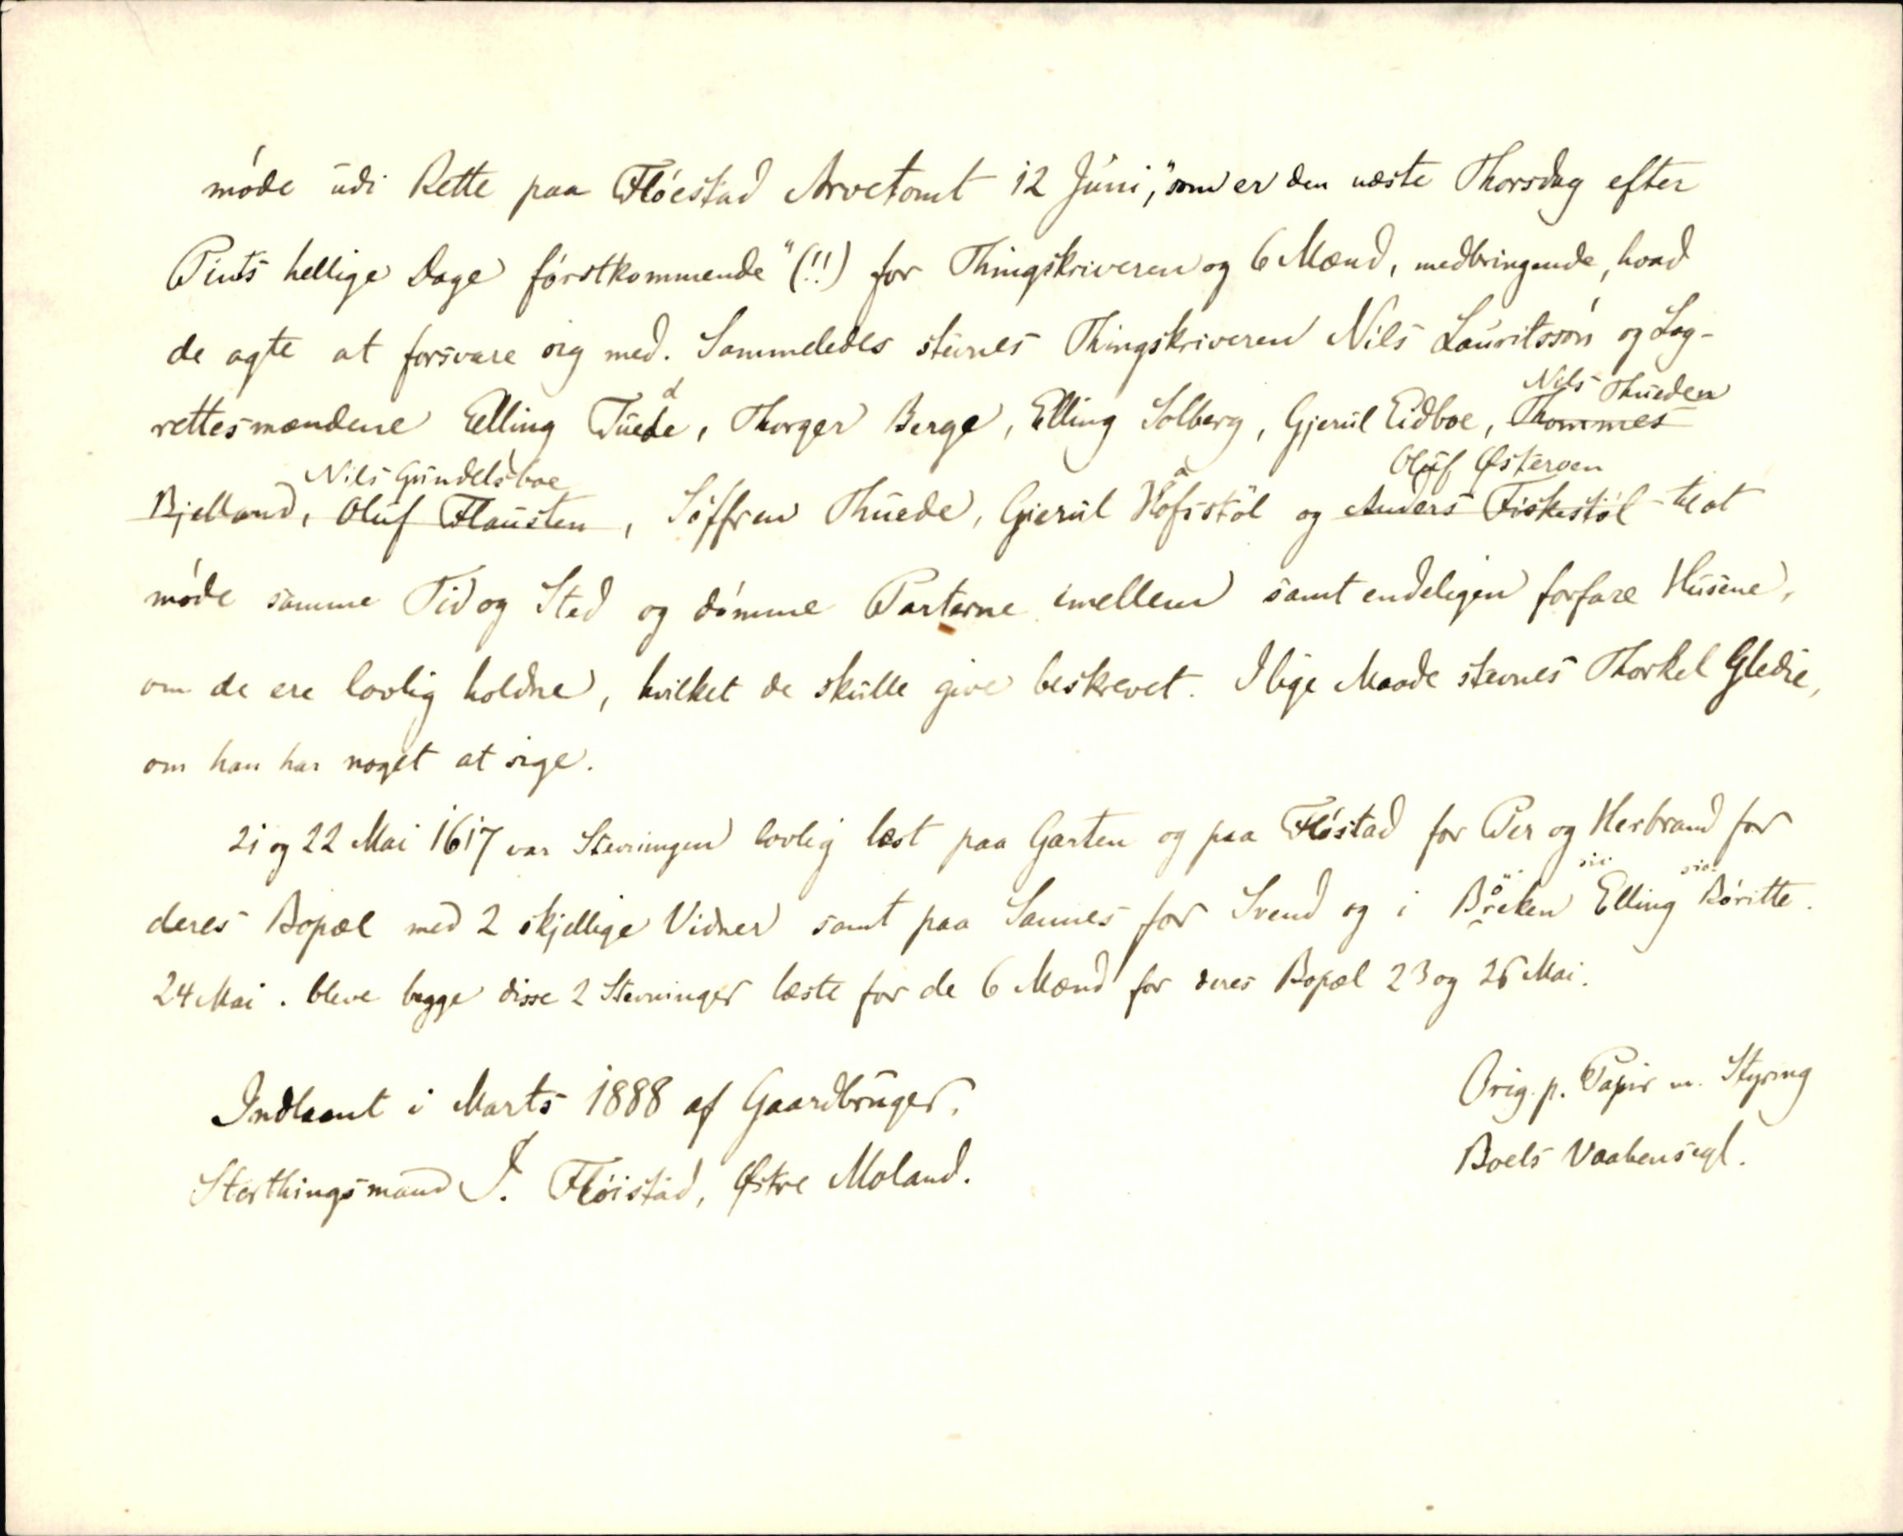 møde udi Rette paa Fløestad Arvetomt 12 Juni, "som er den næste Thorsdag efter
Pints hellige Dage førstkommende" (!!) for Thingskriveren og 6 Mænd, medbringende, hvad
de agte at forsvare sig med. Sammeledes stevnes Thingskriveren Nils Lauritssøn og Lag-
Nils Thueden
rettesmændene Elling Tuede, Thorger Berge, Elling Solberg, Gjerul Eidboe, Thommes
Nils Gundelsboe Oluf Østeroen
Bjelland, Oluf Flausten, Søffren Thuede, Gjerul Hofsstøl og Anders Fiskestøl til at
møde samme Tid og Sted og dømme Parterne imellem samt endeligen forfare Husene,
om de ere lovlig holdne, hvilket de skulle give beskrevet. I lige Maade stevnes Thorkel Gledie,
om han har noget at sige.
21 og 22 Mai 1617 var Stevningen lovlig læst paa Garten og paa Fløstad for Per og Herbrand for
sic sic
deres Bopæl med 2 skjellige Vidner samt paa Sannes for Svend og i Brøken Elling Børitte.
24 Mai. bleve begge disse 2 Stevninger læste for de 6 Mænd for deres Bopæl 23 og 26 Mai.
Indlaant i Marts 1888 af Gaardbruger,
Storthingsmand J. Fløistad, Østre Moland.
Orig. p. Papir m. Styring
Boels Vaabensegl.